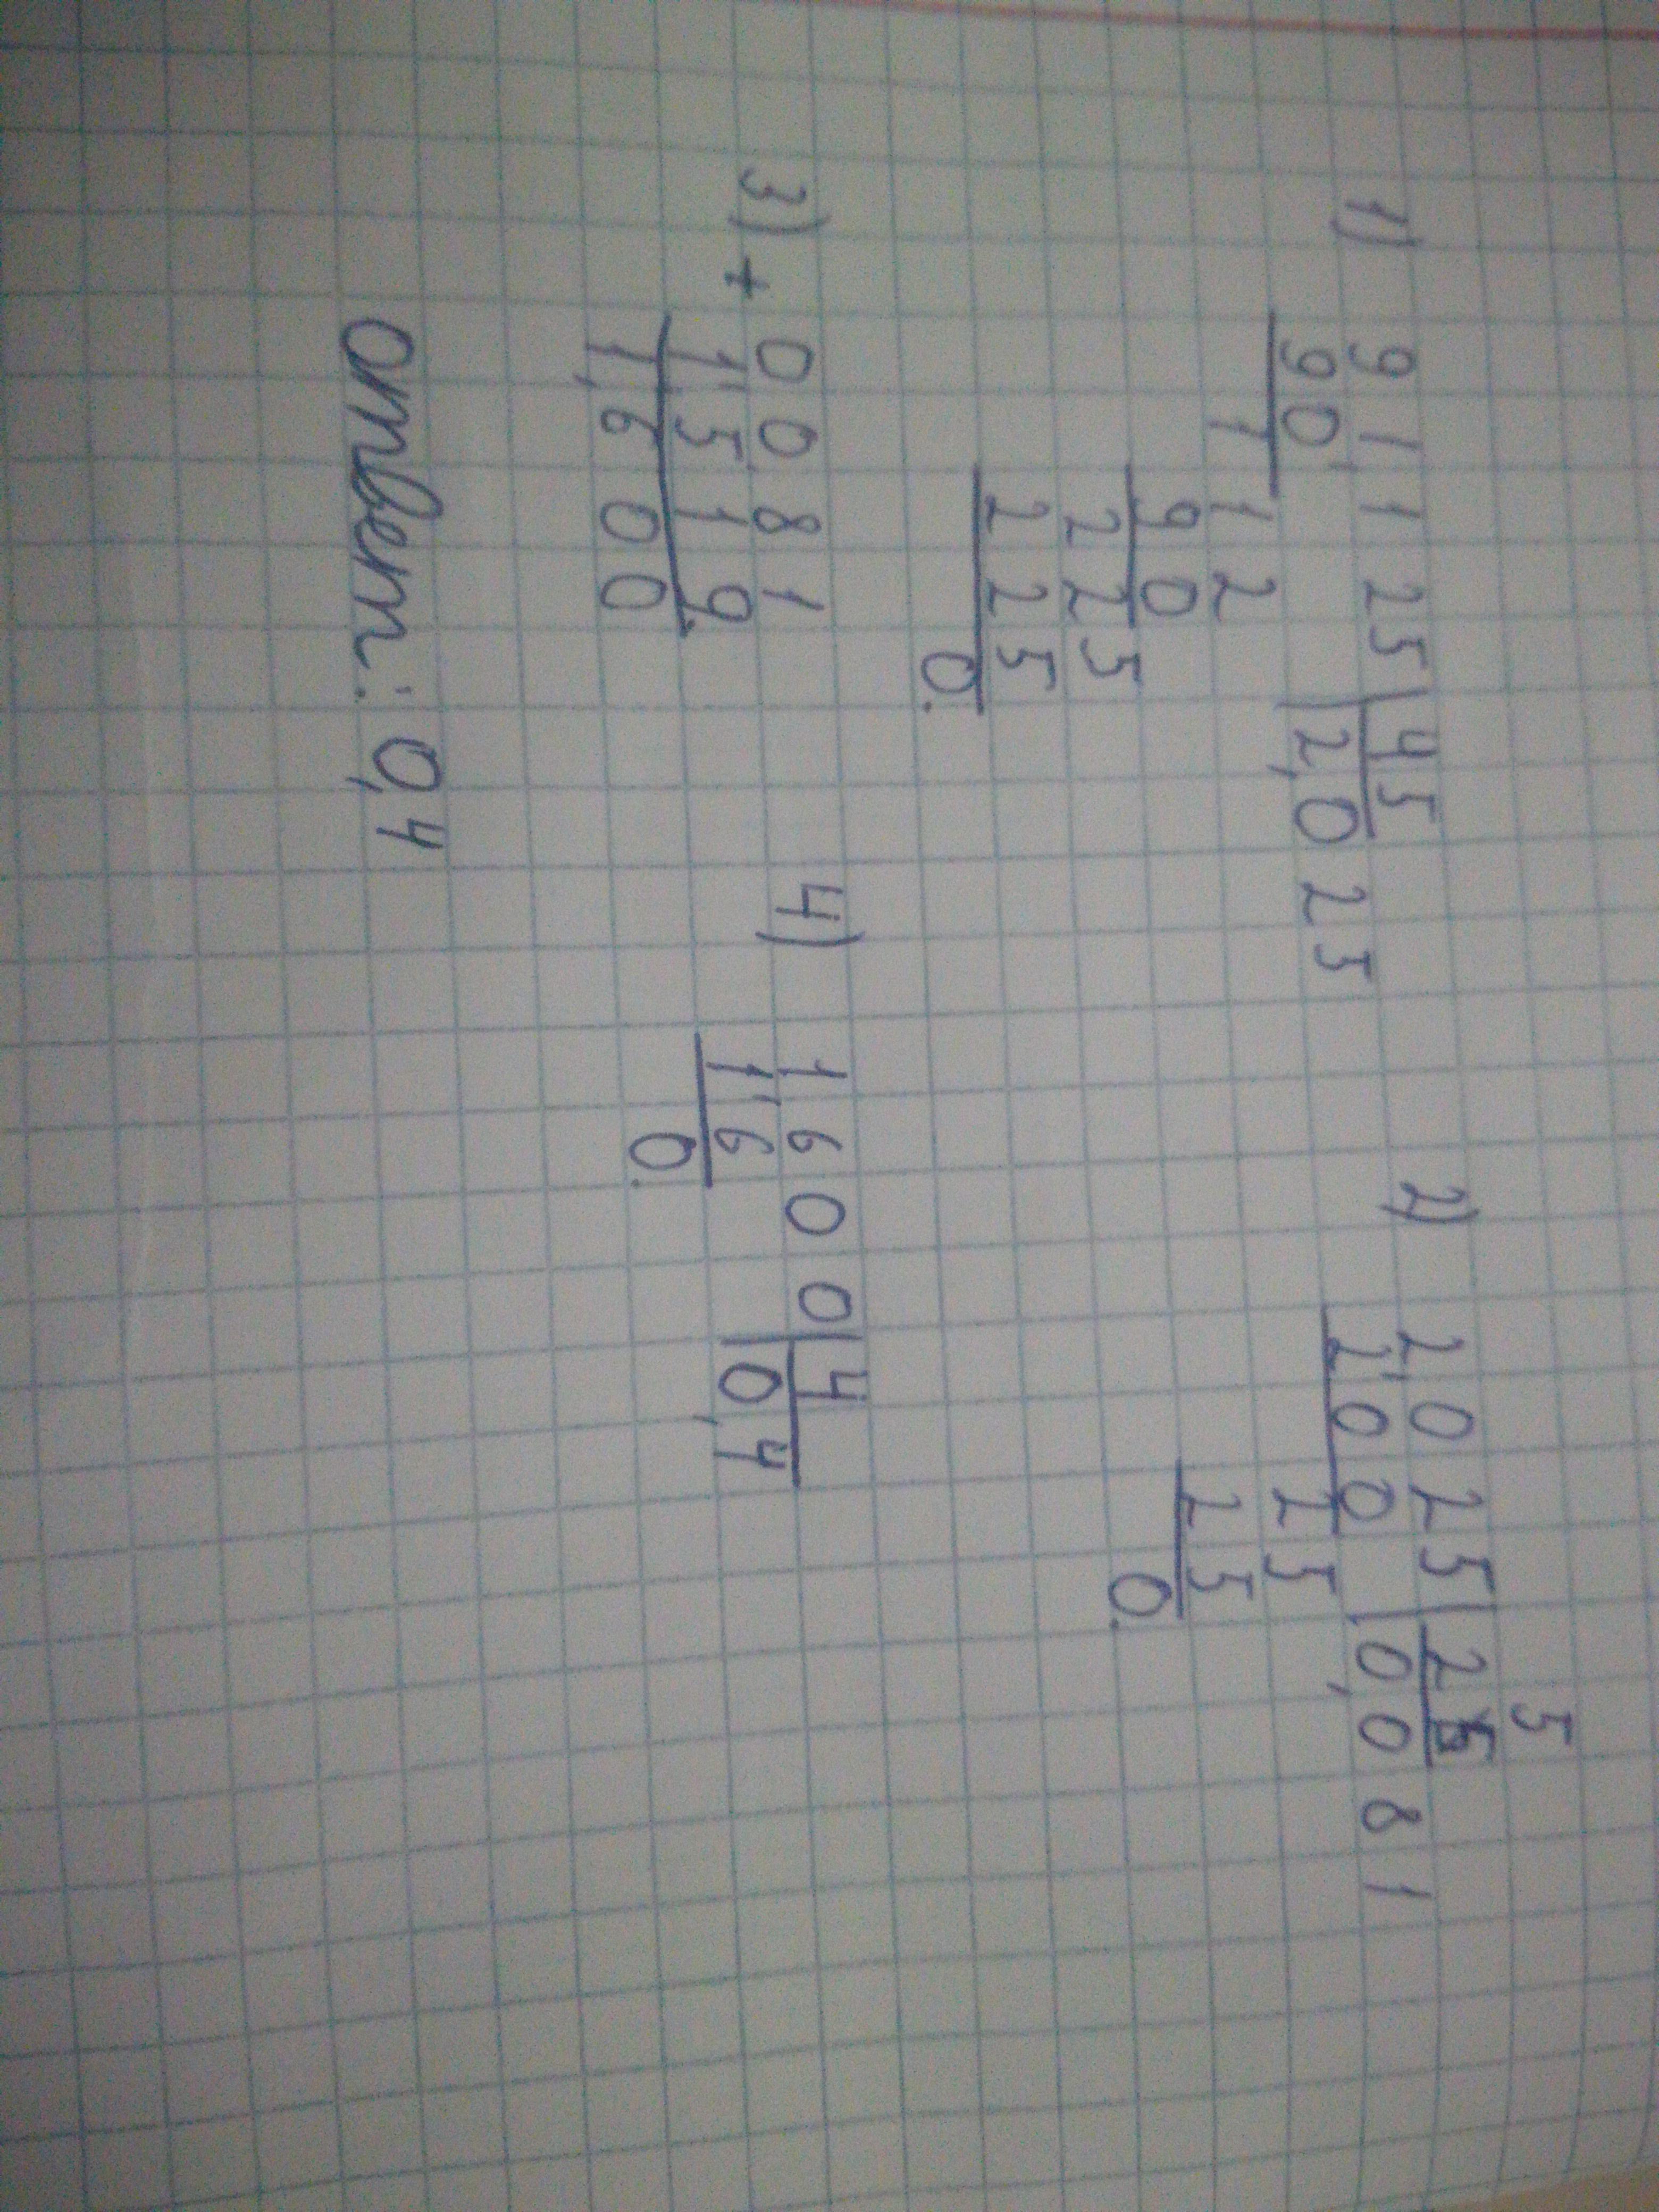 1) 91125 | 45
90 | 2,025
112
90
225
225
0.
2) 2,025 | 25
5
200 | 0,081
25
25
0.
3) + 0,081
1,519
1,600
4) 1,600 | 4
1,6 | 0,4
0.
Ответ: 0,4